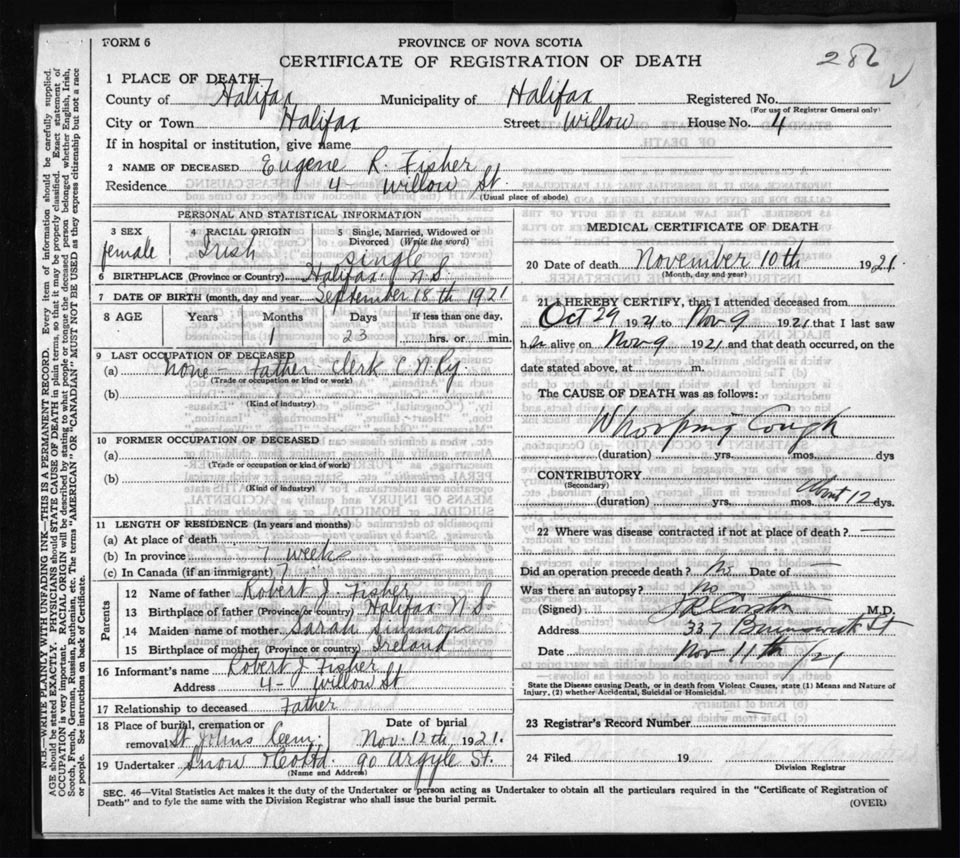 FORM 6
PROVINCE OF NOVA SCOTIA
CERTIFICATE OF REGISTRATION OF DEATH
286
1 PLACE OF DEATH
County of Halifax Municipality of Halifax Registered No.
(For use of Registrar General only)
City or Town Halifax Street Willow House No. 4
If in hospital or institution, give name
2 NAME OF DECEASED Eugene R. Fisher
Residence 4 Willow St.
(Usual place of abode)
PERSONAL AND STATISTICAL INFORMATION
3 SEX female
4 RACIAL ORIGIN Irish
5 Single, Married, Widowed or Divorced (Write the word) single
6 BIRTHPLACE (Province or Country) Halifax N.S.
7 DATE OF BIRTH (month, day and year) September 18th 1921
8 AGE Years Months Days If less than one day,
1 23 hrs. or min.
9 LAST OCCUPATION OF DECEASED
(a) none - Father Clerk C.N.Ry.
(Trade or occupation or kind or work)
(b)
(Kind of industry)
10 FORMER OCCUPATION OF DECEASED
(a)
(Trade or occupation or kind of work)
(b)
(Kind of Industry)
11 LENGTH OF RESIDENCE (In years and months)
(a) At place of death
(b) In province 7 weeks
(c) In Canada (if an immigrant)
Parents
12 Name of father Robert J. Fisher
13 Birthplace of father (Province or country) Halifax N.S.
14 Maiden name of mother Sarah Simmons
15 Birthplace of mother (Province or country) Ireland
16 Informant's name Robert J Fisher
Address 4 - Willow St
17 Relationship to deceased Father
18 Place of burial, cremation or removal St Johns Cem. Date of burial Nov. 12th 1921.
19 Undertaker Snow & Co Ltd. 90 Argyle St.
(Name and Address)
MEDICAL CERTIFICATE OF DEATH
20 Date of death November 10th 1921.
(Month, day and year)
21 I HEREBY CERTIFY, that I attended deceased from
Oct 29 1921 to Nov 9 1921 that I last saw
her alive on Nov 9 1921 and that death occurred, on the
date stated above, at m.
The CAUSE OF DEATH was as follows:
Whooping Cough
(duration) yrs. mos. dys
CONTRIBUTORY
(Secondary)
(duration) yrs. mos. about 12 dys.
22 Where was disease contracted if not at place of death?
Did an operation precede death? No Date of —
Was there an autopsy? No
(Signed) M.D.
Address 337 Brunswick St
Date Nov 11th /21
State the Disease causing Death, or in death from Violent Causes, state (1) Means and Nature of
Injury, (2) whether Accidental, Suicidal or Homicidal.
23 Registrar's Record Number
24 Filed 19
Division Registrar
SEC. 46—Vital Statistics Act makes it the duty of the Undertaker or person acting as Undertaker to obtain all the particulars required in the "Certificate of Registration of
Death" and to fyle the same with the Division Registrar who shall issue the burial permit.
(OVER)
N.B.—WRITE PLAINLY WITH UNFADING INK—THIS IS A PERMANENT RECORD. Every item of information should be carefully supplied.
AGE should be stated EXACTLY. PHYSICIANS should STATE CAUSE OF DEATH in plain terms, so that it may be properly classified. Exact statement of
OCCUPATION is very important. RACIAL ORIGIN will be described by stating to what people or tongue the deceased person belonged whether English, Irish,
Scotch, French, German, Russian, Ruthenian, etc. The terms "AMERICAN" OR "CANADIAN" MUST NOT BE USED as they express citizenship but not a race
or people. See instructions on back of Certificate.